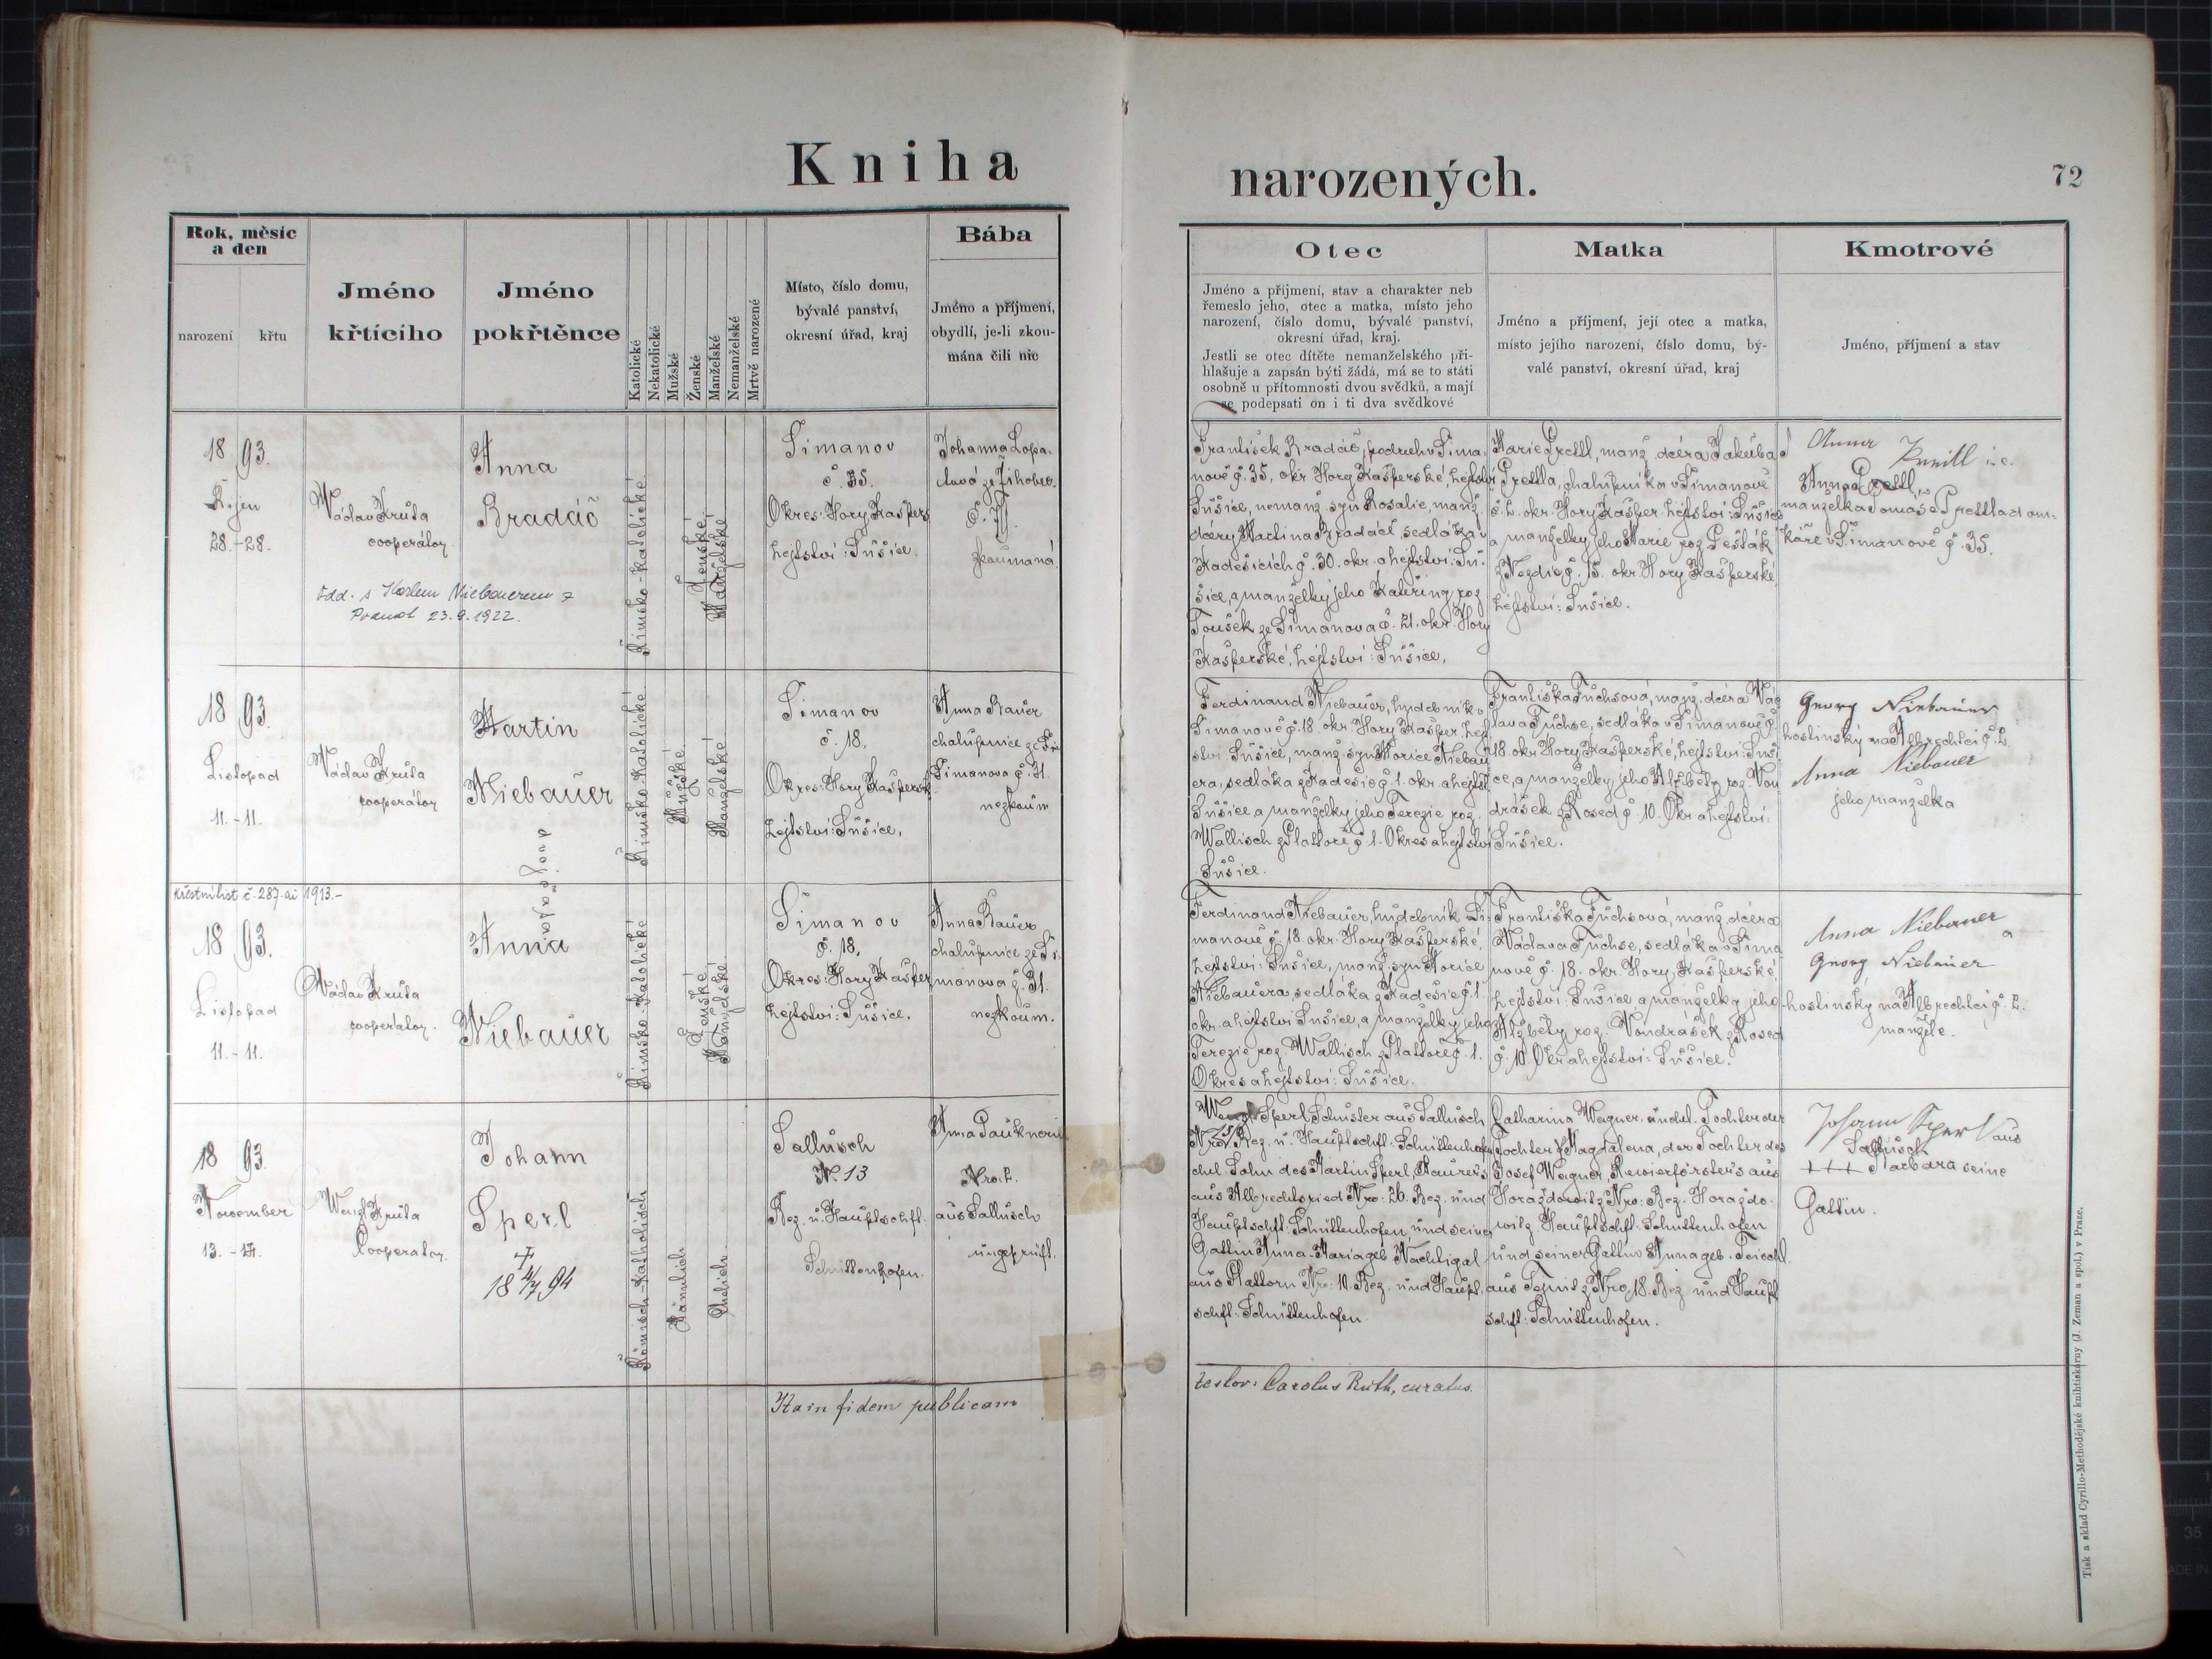 Kniha
narozených.
72
Rok, měsíc
a den
narození
křtu
Jméno
křtícího
Jméno
pokřtěnce
Katolické
Nekatolické
Mužské
Ženské
Manželské
Nemanželské
Mrtvě narozené
Místo, číslo domu,
bývalé panství,
okresní úřad, kraj
Bába
Jméno a příjmení,
obydlí, je-li zkou-
mána čili nic
Otec
Jméno a příjmení, stav a charakter neb
řemeslo jeho, otec a matka, místo jeho
narození, číslo domu, bývalé panství,
okresní úřad, kraj.
Jestli se otec dítěte nemanželského při-
hlašuje a zapsán býti žádá, má se to státi
osobně u přítomnosti dvou svědků, a mají
se podepsati on i ti dva svědkové
Matka
Jméno a příjmení, její otec a matka,
místo jejího narození, číslo domu, bý-
valé panství, okresní úřad, kraj
Kmotrové
Jméno, příjmení a stav
18 93.
Říjen
28. - 28.
Václav Kruta
cooperátor.
Odd. s Karlem Niebauerem z
23.9.1922.
Anna
Bradáč
Římsko-katolické
Ženské
Manželské
Šimanov
č. 35.
Okres: Hory Kašpers
hejtství: Sušice.
Johanna Lopa-
tová ze Žihobec
zkoumaná.
František Bradáč, podruh v Šima
nově č. 35, okr. Hory Kašperské, hejtství
Sušice, nemanž. syn Rosalie, manž.
dcery Martina Bradáče, sedláka v
Kadešicích č. 30. okr. a hejtství: Su-
šice, a manželky jeho Kateřiny roz.
Toušek ze Šimanova č. 21. okr. Hory
Kašperské, hejtství: Sušice.
Marie Prettl, manž. dcera Jakuba
Prettla, chalupníka v Šimanově
č. 2. okr. Hory Kašper. hejtství: Sušice
a manželky jeho Marie roz. Pešták
z Nezdic č. 15. okr. Hory Kašperské,
hejtství: Sušice.
Anna
Anna Prettl
manželka Tomáše Prettla dom-
káře v Šimanově č. 35.
18 93.
Listopad
11. - 11.
Václav Kruta
cooperátor
Martin
Niebauer
Římsko-Katolické
Mužské
Manželské
Šimanov
č. 18.
Okres: Hory Kaspersk
hejtství: Sušice.
Anna Bauer
chalupnice ze Ši
Šimanova č. 31.
nezkoum
Ferdinand Niebauer, hudebník v
Šimanově č. 18. okr. Hory Kašper. hejt
ství Sušice, manž. syn Morice Niebau
era, sedláka z Kadešic č. 1. okr. a hejtst
Sušice a manželky jeho Terezie roz.
Wallisch z Plattoře č. 1. Okres a hejtství
Sušice.
Františka Fuchsová, manž. dcera Vác
lava Fuchse, sedláka v Šimanově č.
18. okr. Hory Kašperské, hejtství: Suši
ce, a manželky jeho Alžběty roz. Von
drášek z Rosed č. 10. Okr. a hejtství:
Sušice.
Georg Niebauer
hostinský na Albrechtci č. 2.
Anna Niebauer
jeho manželka
Křestní list č. 287. ai 1913.-
18 93.
Listopad
11. - 11.
Václav Kruta
cooperátor.
Anna
Niebauer
Římsko-Katolické
Ženské
Manželské
Šimanov
č. 18.
Okres: Hory Kašper
hejtství: Sušice.
Anna Bauer
chalupnice ze Ši-
manova č. 31.
nezkoum.
Ferdinand Niebauer, hudebník Ši-
manově č. 18. okr. Hory Kašperské,
hejtství: Sušice, manž. syn Morice
Niebauera, sedláka z Kadešic č. 1.
okr. a hejtství Sušice, a manželky jeho
Terezie roz. Wallisch z Plattoře č. 1.
Okres a hejtství: Sušice.
Františka Fuchsová, manž. dcera
Václava Fuchse, sedláka v Šima
nově č. 18. okr. Hory Kašperské,
hejtství: Sušice a manželky jeho
Alžběty roz. Vondrášek z Rosed
č. 10. Okr. a hejtství: Sušice.
Anna Niebauer
a
Georg Niebauer
hostinský na Albrechtci č. 2.
manželé.
18 93.
November
13. - 14.
Wenzl Kruta
Cooperator.
Johann
Sperl
+
18 4/7 94
Römisch-Katholisch
Männlich
Ehelich
Sallusch
N. 13
Bez. u. Hauptschft.
Schüttenhofen.
Anna Pauknerin
Nro. 2.
aus Sallusch
ungeprüft.
Wenzl Sperl, Schuster aus Sallusch
Nro 13 Bez. u. Hauptschft. Schüttenhofen
ehel. Sohn des Martin Sperl, Maurers
aus Albrechtsried Nro: 26. Bez. und
Hauptschft. Schüttenhofen, und seiner
Gattin Anna-Maria geb. Nachtigal
aus Plattorn Nro: 10. Bez. und Haupt-
schft. Schüttenhofen.
Catharina Wagner, unehel. Tochter der
Tochter Magdalena, der Tochter des
Josef Wagner, Revierförsters aus
Horaždowitz Nro: Bez. Horaždo-
witz Hauptschft. Schüttenhofen
und seiner Gattin Anna geb. Teischl.
aus Tejnitz Nro, 18. Bez. und Haupt
schft: Schüttenhofen.
Johann Sperl aus
Sallusch
+++ Barbara seine
Gattin.
Ita in fidem publicam
testor: Carolus Ruth, curatus.
Tisk a sklad Cyrillo-Methodějské knihtiskárny (J. Zeman a spol.) v Praze.